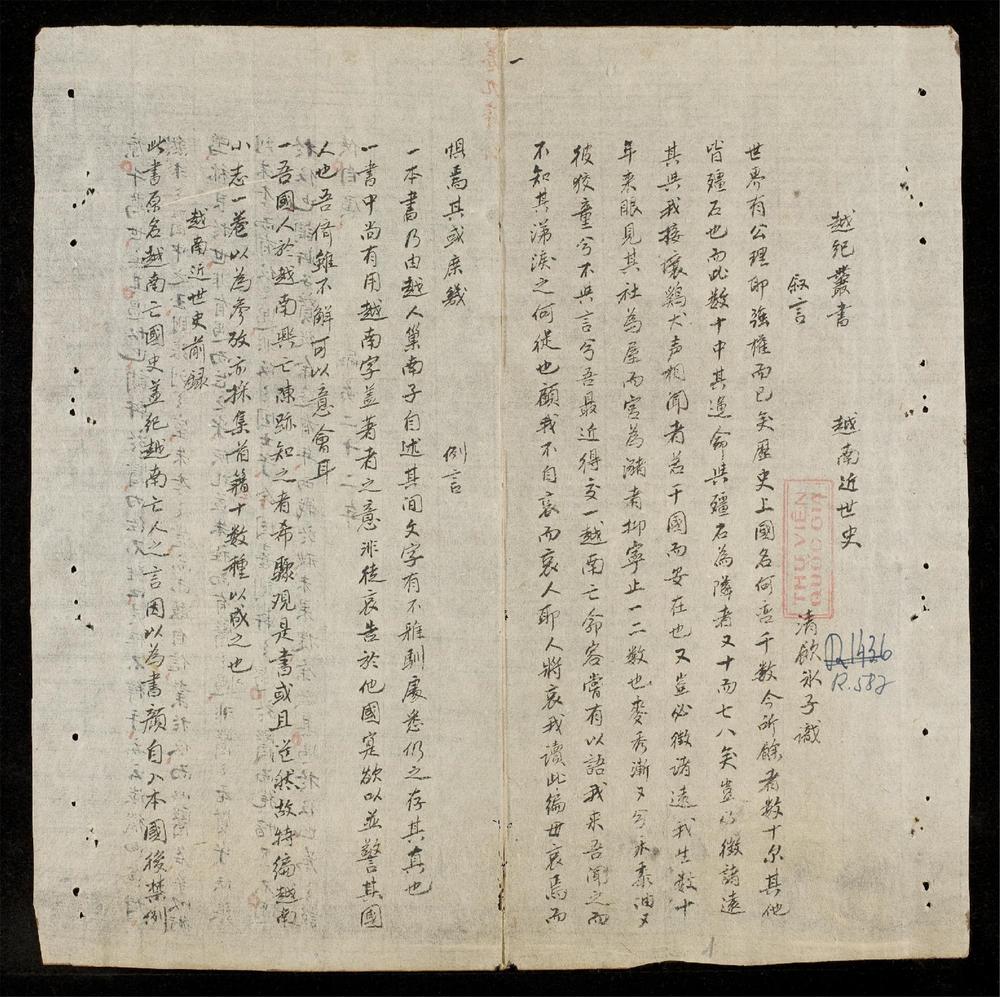 越紀叢書
越南近世史
叙言
清欽氷子識
世界有公理耶強權而已矣歷史上國名何啻千数今所餘者数十尔其他
皆殭石也而此数十中其造命與殭石為隣者又十而七八矣豈必徵諸遠
其與我接壤鷄犬声相聞者若干國而安在也又豈必徵諸遠我生数十
年来眼見其社為屋而宮為瀦者抑寧止一二数也麥秀漸又兮禾黍油又
彼狡童兮不與言兮吾最近得交一越南亡命客嘗有以語我来吾聞之而
不知其涕淚之何從也顧我不自哀而哀人耶人將哀我讀此編毋哀焉而
惧焉其或庶幾
例言
一本書乃由越人巢南子自述其间文字有不雅馴處悉仍之存其真也
一書中尚有用越南字盖著者之意非徒哀告於他國寔欲以並警其國
人也吾儕雖不解可以意會耳
一吾國人於越南興亡陳跡知之者希驟观是書或且茫然故特编越南
小志一卷以為參攷亦採集首籍十数種以成之也
越南近世史前録
此書原名越南亡國史盖紀越南亡人之言因以為書顔自入本國後禁例
THƯ VIỆN
QUỐC GIA
R.1436
R.582